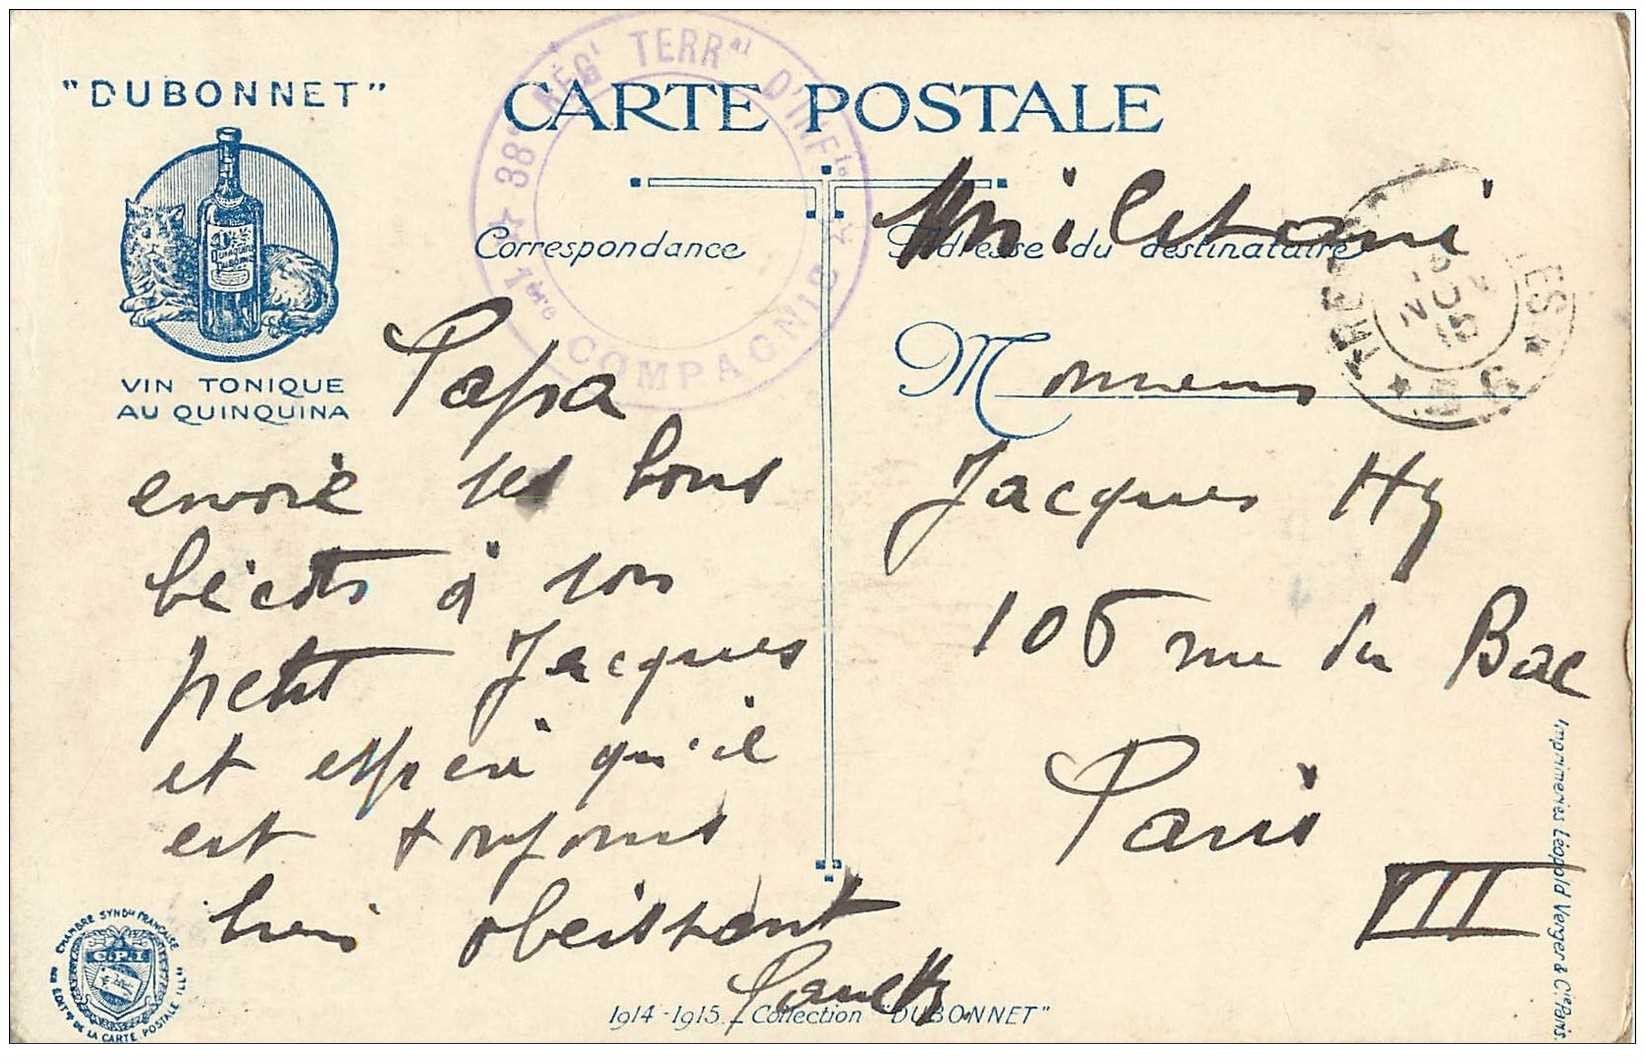 "DUBONNET"
VIN TONIQUE
AU QUINQUINA
CARTE POSTALE
38e RÉGt TERRal D'INFie
1ère COMPAGNIE
Correspondance
Adresse du destinataire
Papa
envoie ses bons
bécots à son
petit Jacques
et espère qu'il
est toujours
bien obeissant
Militaire
Monsieur
Jacques Hy
106 rue du Bac
Paris
VII
CHAMBRE SYNDle FRANÇAISE
C.P.I
DE LA CARTE POSTALE ILLée
1914-1915 _ Collection "DUBONNET"
Imprimeries Léopold Verger & Cie Paris.